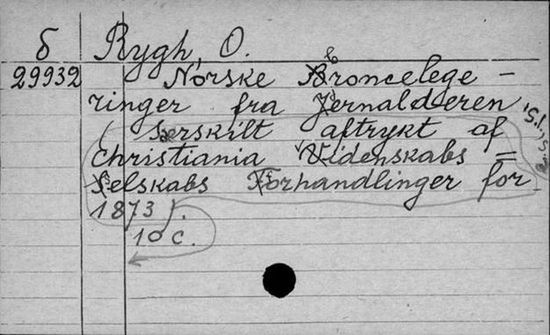 б Rygh, O.
29932 Norske Broncelege-
ringer fra Jernalderen
(Særskilt aftrykt af
Christiania Videnskabs=
Selskabs Forhandlinger for
1873).
10 c.